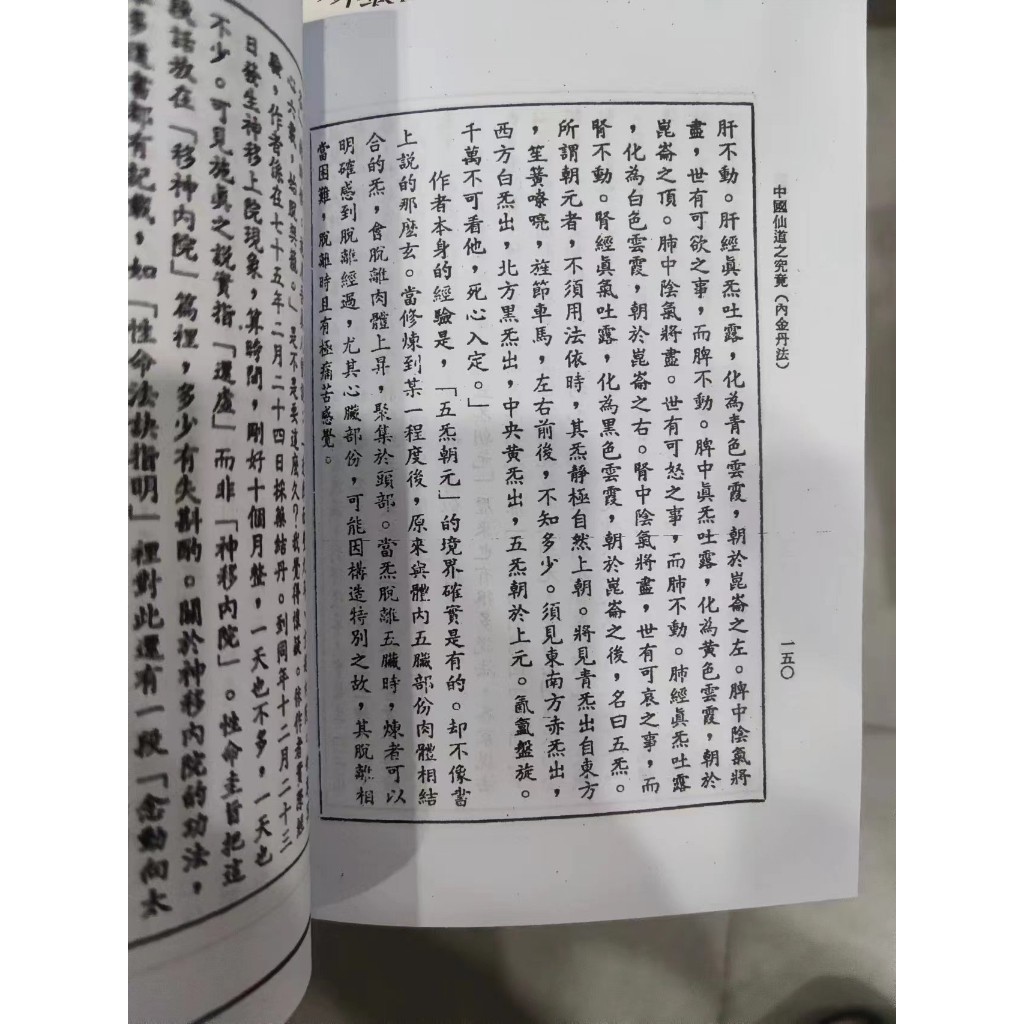 中國仙道之究竟（內金丹法）
一五〇
肝不動。肝經眞炁吐露，化為青色雲霞，朝於崑崙之左。脾中陰氣將
盡，世有可欲之事，而脾不動。脾中眞炁吐露，化為黃色雲霞，朝於
崑崙之頂。肺中陰氣將盡。世有可怒之事，而肺不動。肺經眞炁吐露
，化為白色雲霞，朝於崑崙之右。腎中陰氣將盡，世有可哀之事，而
腎不動。腎經眞氣吐露，化為黑色雲霞，朝於崑崙之後，名曰五炁。
所謂朝元者，不須用法依時，其炁靜極自然上朝。將見青炁出自東方
，笙簧嘹喨，旌節車馬，左右前後，不知多少。須見東南方赤炁出，
西方白炁出，北方黑炁出，中央黃炁出，五炁朝於上元。氤氳盤旋。
千萬不可看他，死心入定。」
作者本身的經驗是，「五炁朝元」的境界確實是有的。却不像書
上說的那麽玄。當修煉到某一程度後，原來與體內五臟部份肉體相結
合的炁，會脫離肉體上昇，聚集於頭部。當炁脫離五臟時，煉者可以
明確感到脫離經過，尤其心臟部份，可能因構造特別之故，其脫離相
當困難，脫離時且有極痛苦感覺。
是不是要這麽久？我覺得懷疑。依作者實際經
驗，作者係在七十五年二月二十四日採藥結丹。到同年十二月二十三
日發生神移上院現象，算時間，剛好十個月整，一天也不多，一天也
不少。可見施眞之說實指「還虛」而非「神移內院」。性命圭旨把這
段話放在「移神內院」篇裡，多少有失斟酌。關於神移內院的功法，
多道書都有記載，如「性命法訣指明」裡對此還有一段「念動向太